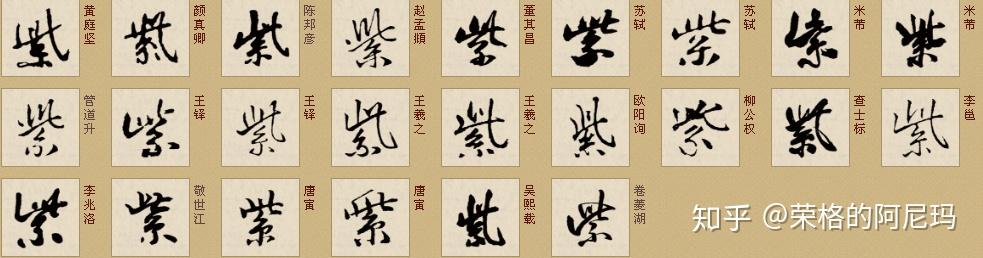 紫 黄庭坚
紫 颜真卿
紫 陈邦彦
紫 赵孟頫
紫 董其昌
紫 苏轼
紫 苏轼
紫 米芾
紫 米芾
紫 管道升
紫 王铎
紫 王铎
紫 王羲之
紫 王羲之
紫 欧阳询
紫 柳公权
紫 查士标
紫 李邕
紫 李兆洛
紫 敬世江
紫 唐寅
紫 唐寅
紫 吴熙载
紫 卷菱湖
知乎 @荣格的阿尼玛